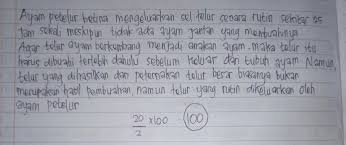 Ayam petelur betina mengeluarkan sel telur secara rutin sekitar 25
Jam sekali meskipun tidak ada ayam jantan yang membuahinya
Agar telur ayam berkembang menjadi anakan ayam. maka telur itu
harus dibuahi terlebih dahulu sebelum keluar dari tubuh ayam Namun,
telur yang dihasilkan dari peternakan telur besar biasanya bukan
merupakan hasil pembuahan namun telur yang rutin dikeluarkan oleh
ayam petelur
20/2 x100 100